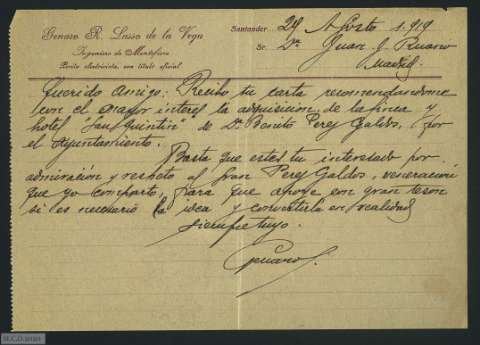 Genaro R. Lasso de la Vega
Ingeniero de Montefiore
Perito electricista, con título oficial
Santander 29 Agosto 1.919
Sr. Dn Juan J. Ruano
Madrid
Querido Amigo: Recibo tu carta recomendandome
con el mayor interes la adquisicion de la finca y
hotel "San Quintin" de Dn Benito Perez Galdos, por
el Ayuntamiento.
Basta que estes tu interesado por
admiración y respeto al gran Perez Galdos, veneracion
que yo comparto, para que apoye con gran teson
si es necesario la idea y convertirla en realidad
siempre tuyo.
Genaro